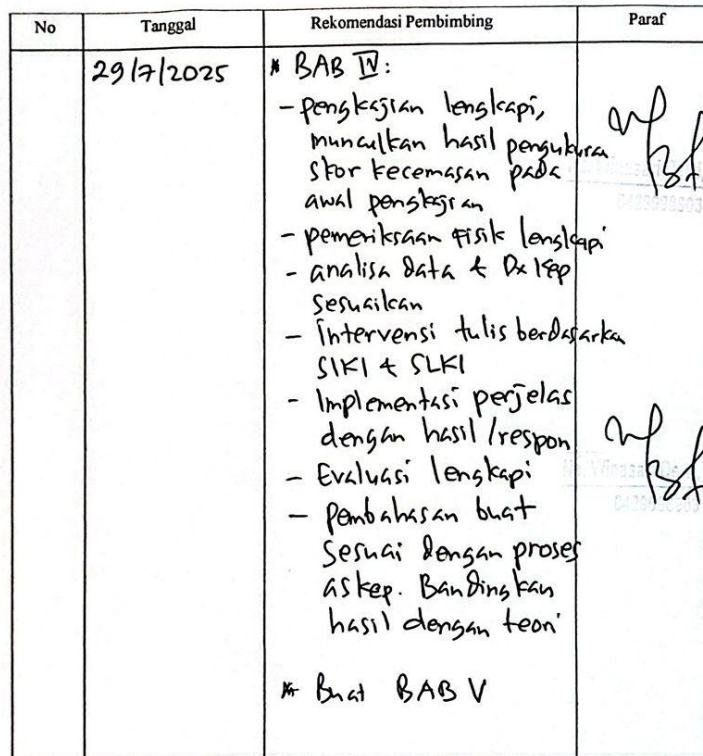 No Tanggal Rekomendasi Pembimbing Paraf
29/7/2025 * BAB IV:
- pengkajian lengkapi,
munculkan hasil pengukuran
skor kecemasan pada
awal pengkajian
- pemeriksaan fisik lengkapi
- analisa data & Dx kep
sesuaikan
- Intervensi tulis berdasarkan
SIKI & SLKI
- Implementasi perjelas
dengan hasil/respon
- Evaluasi lengkapi
- Pembahasan buat
sesuai dengan proses
askep. Bandingkan
hasil dengan teori
* Buat BAB V